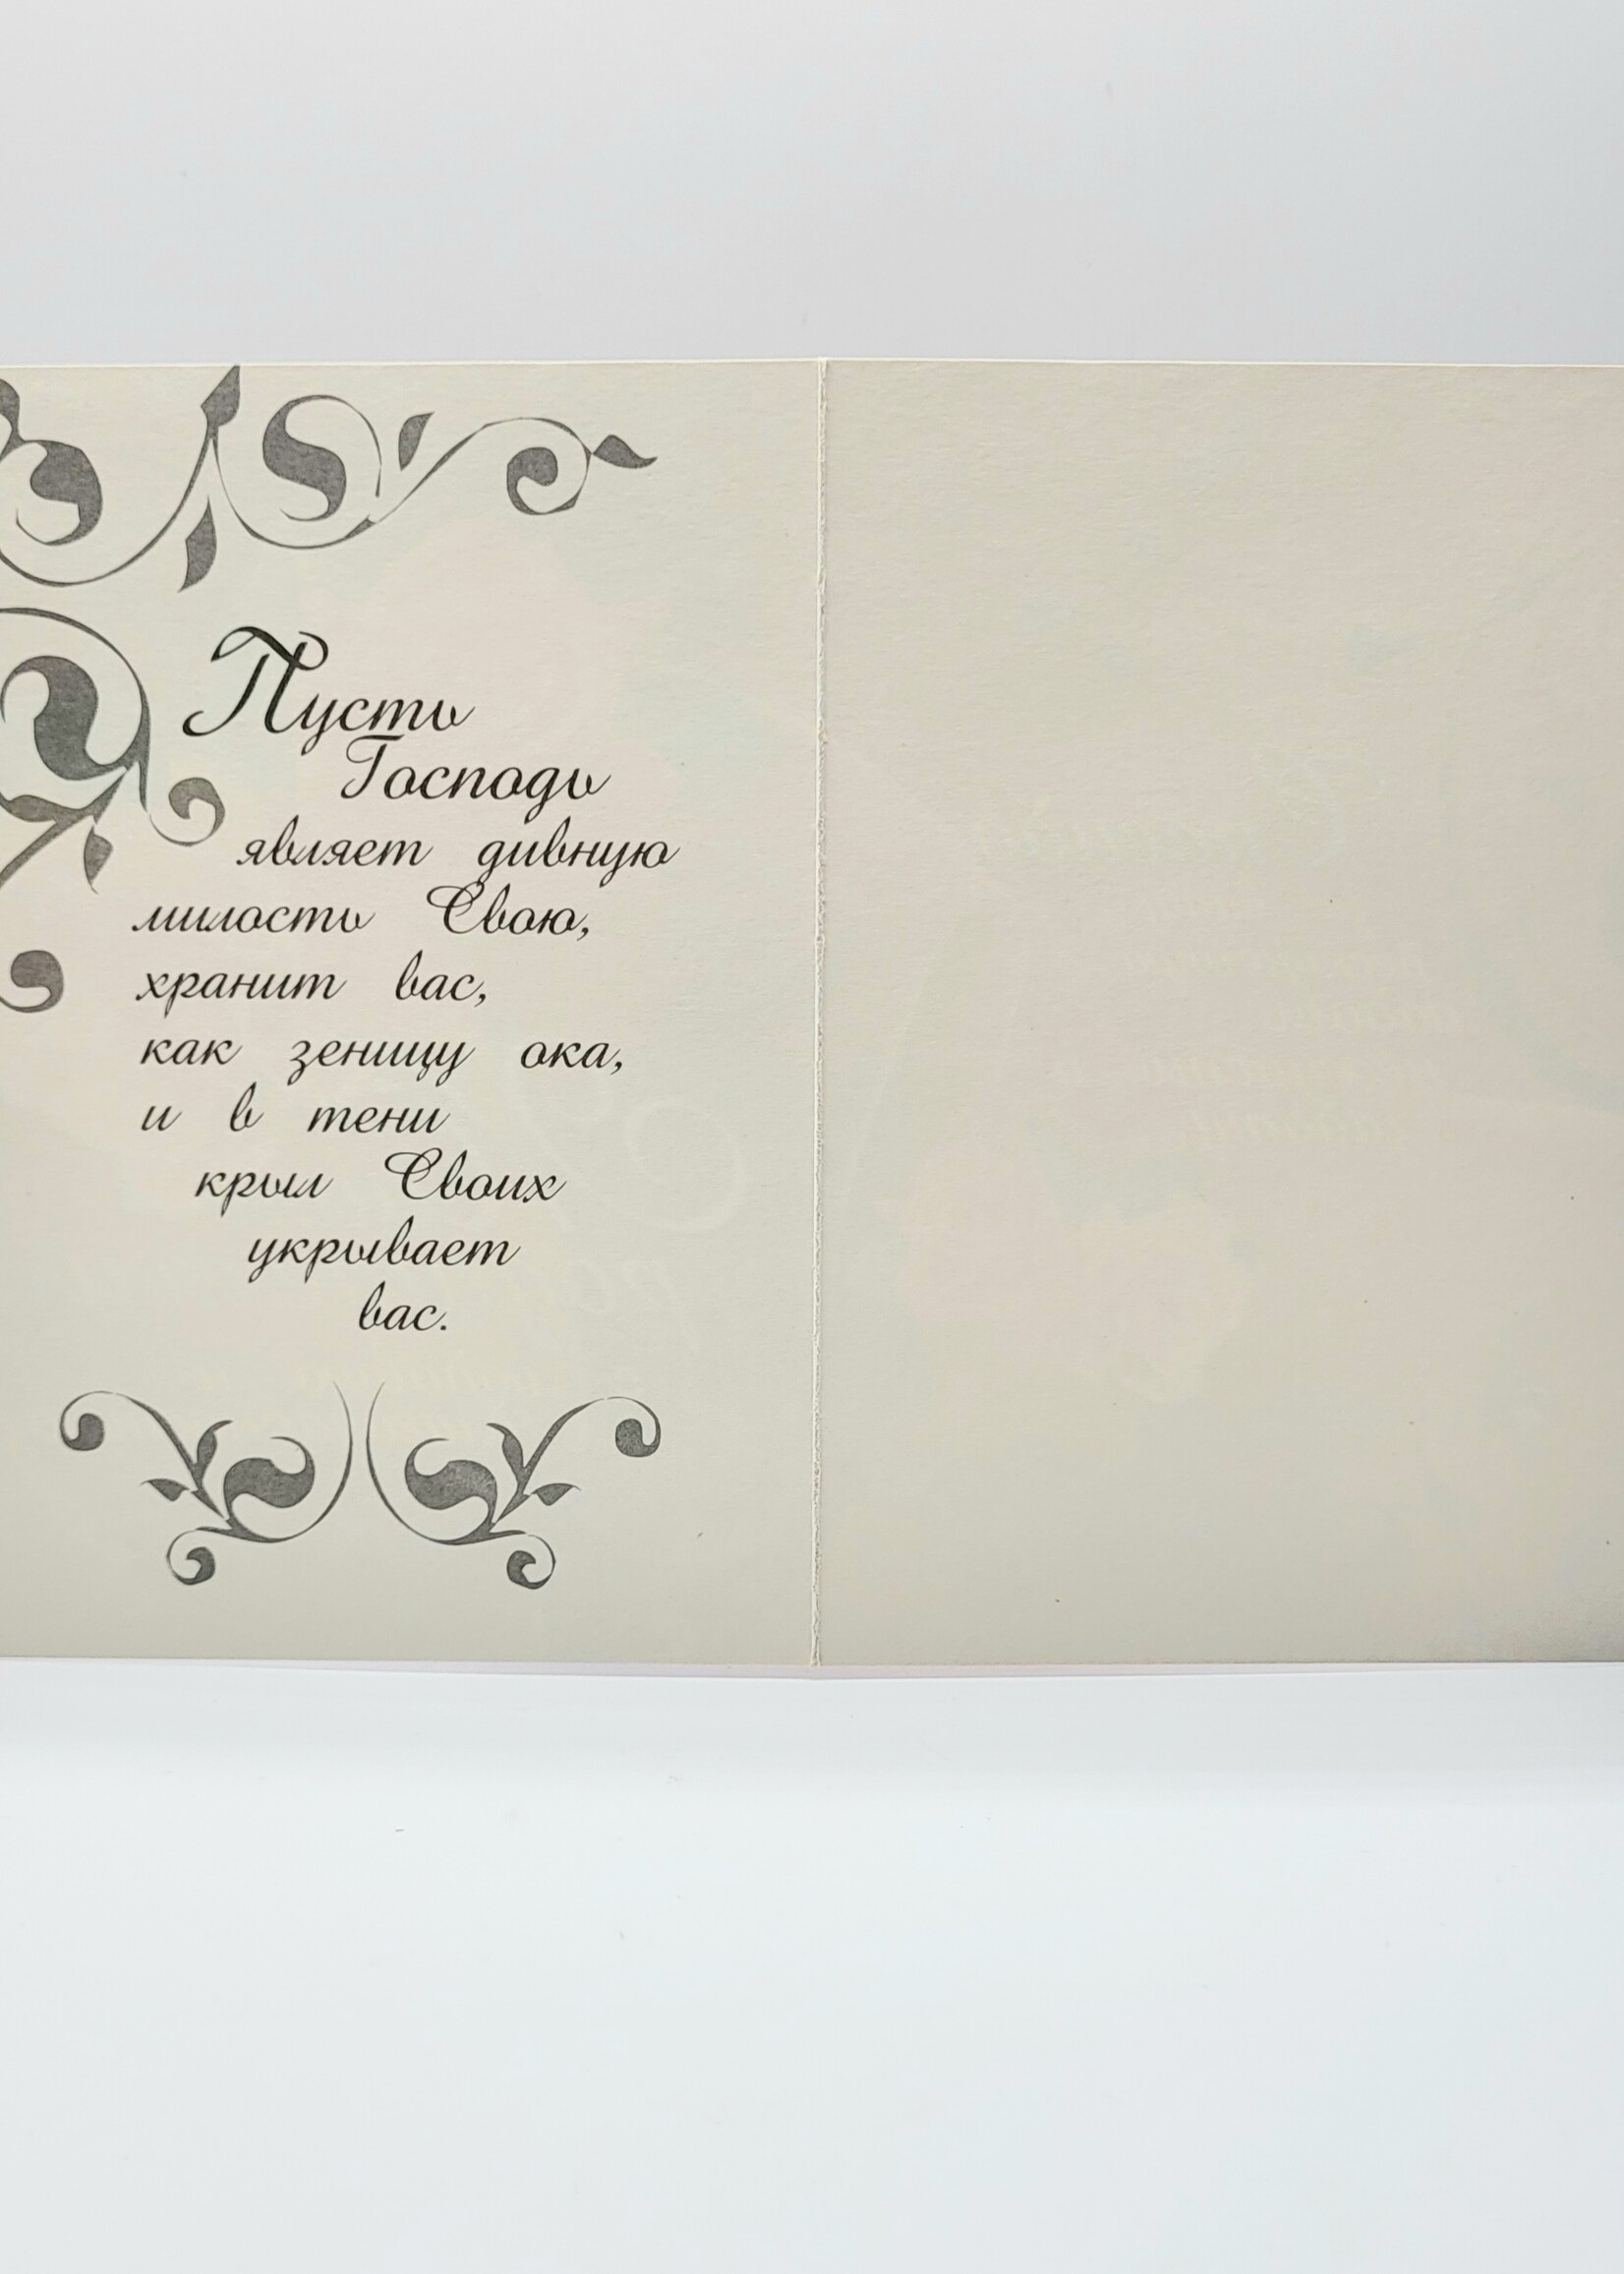 Пусть
Господь
являет дивную
милость Свою,
хранит вас,
как зеницу ока,
и в тени
крыл Своих
укрывает
вас.